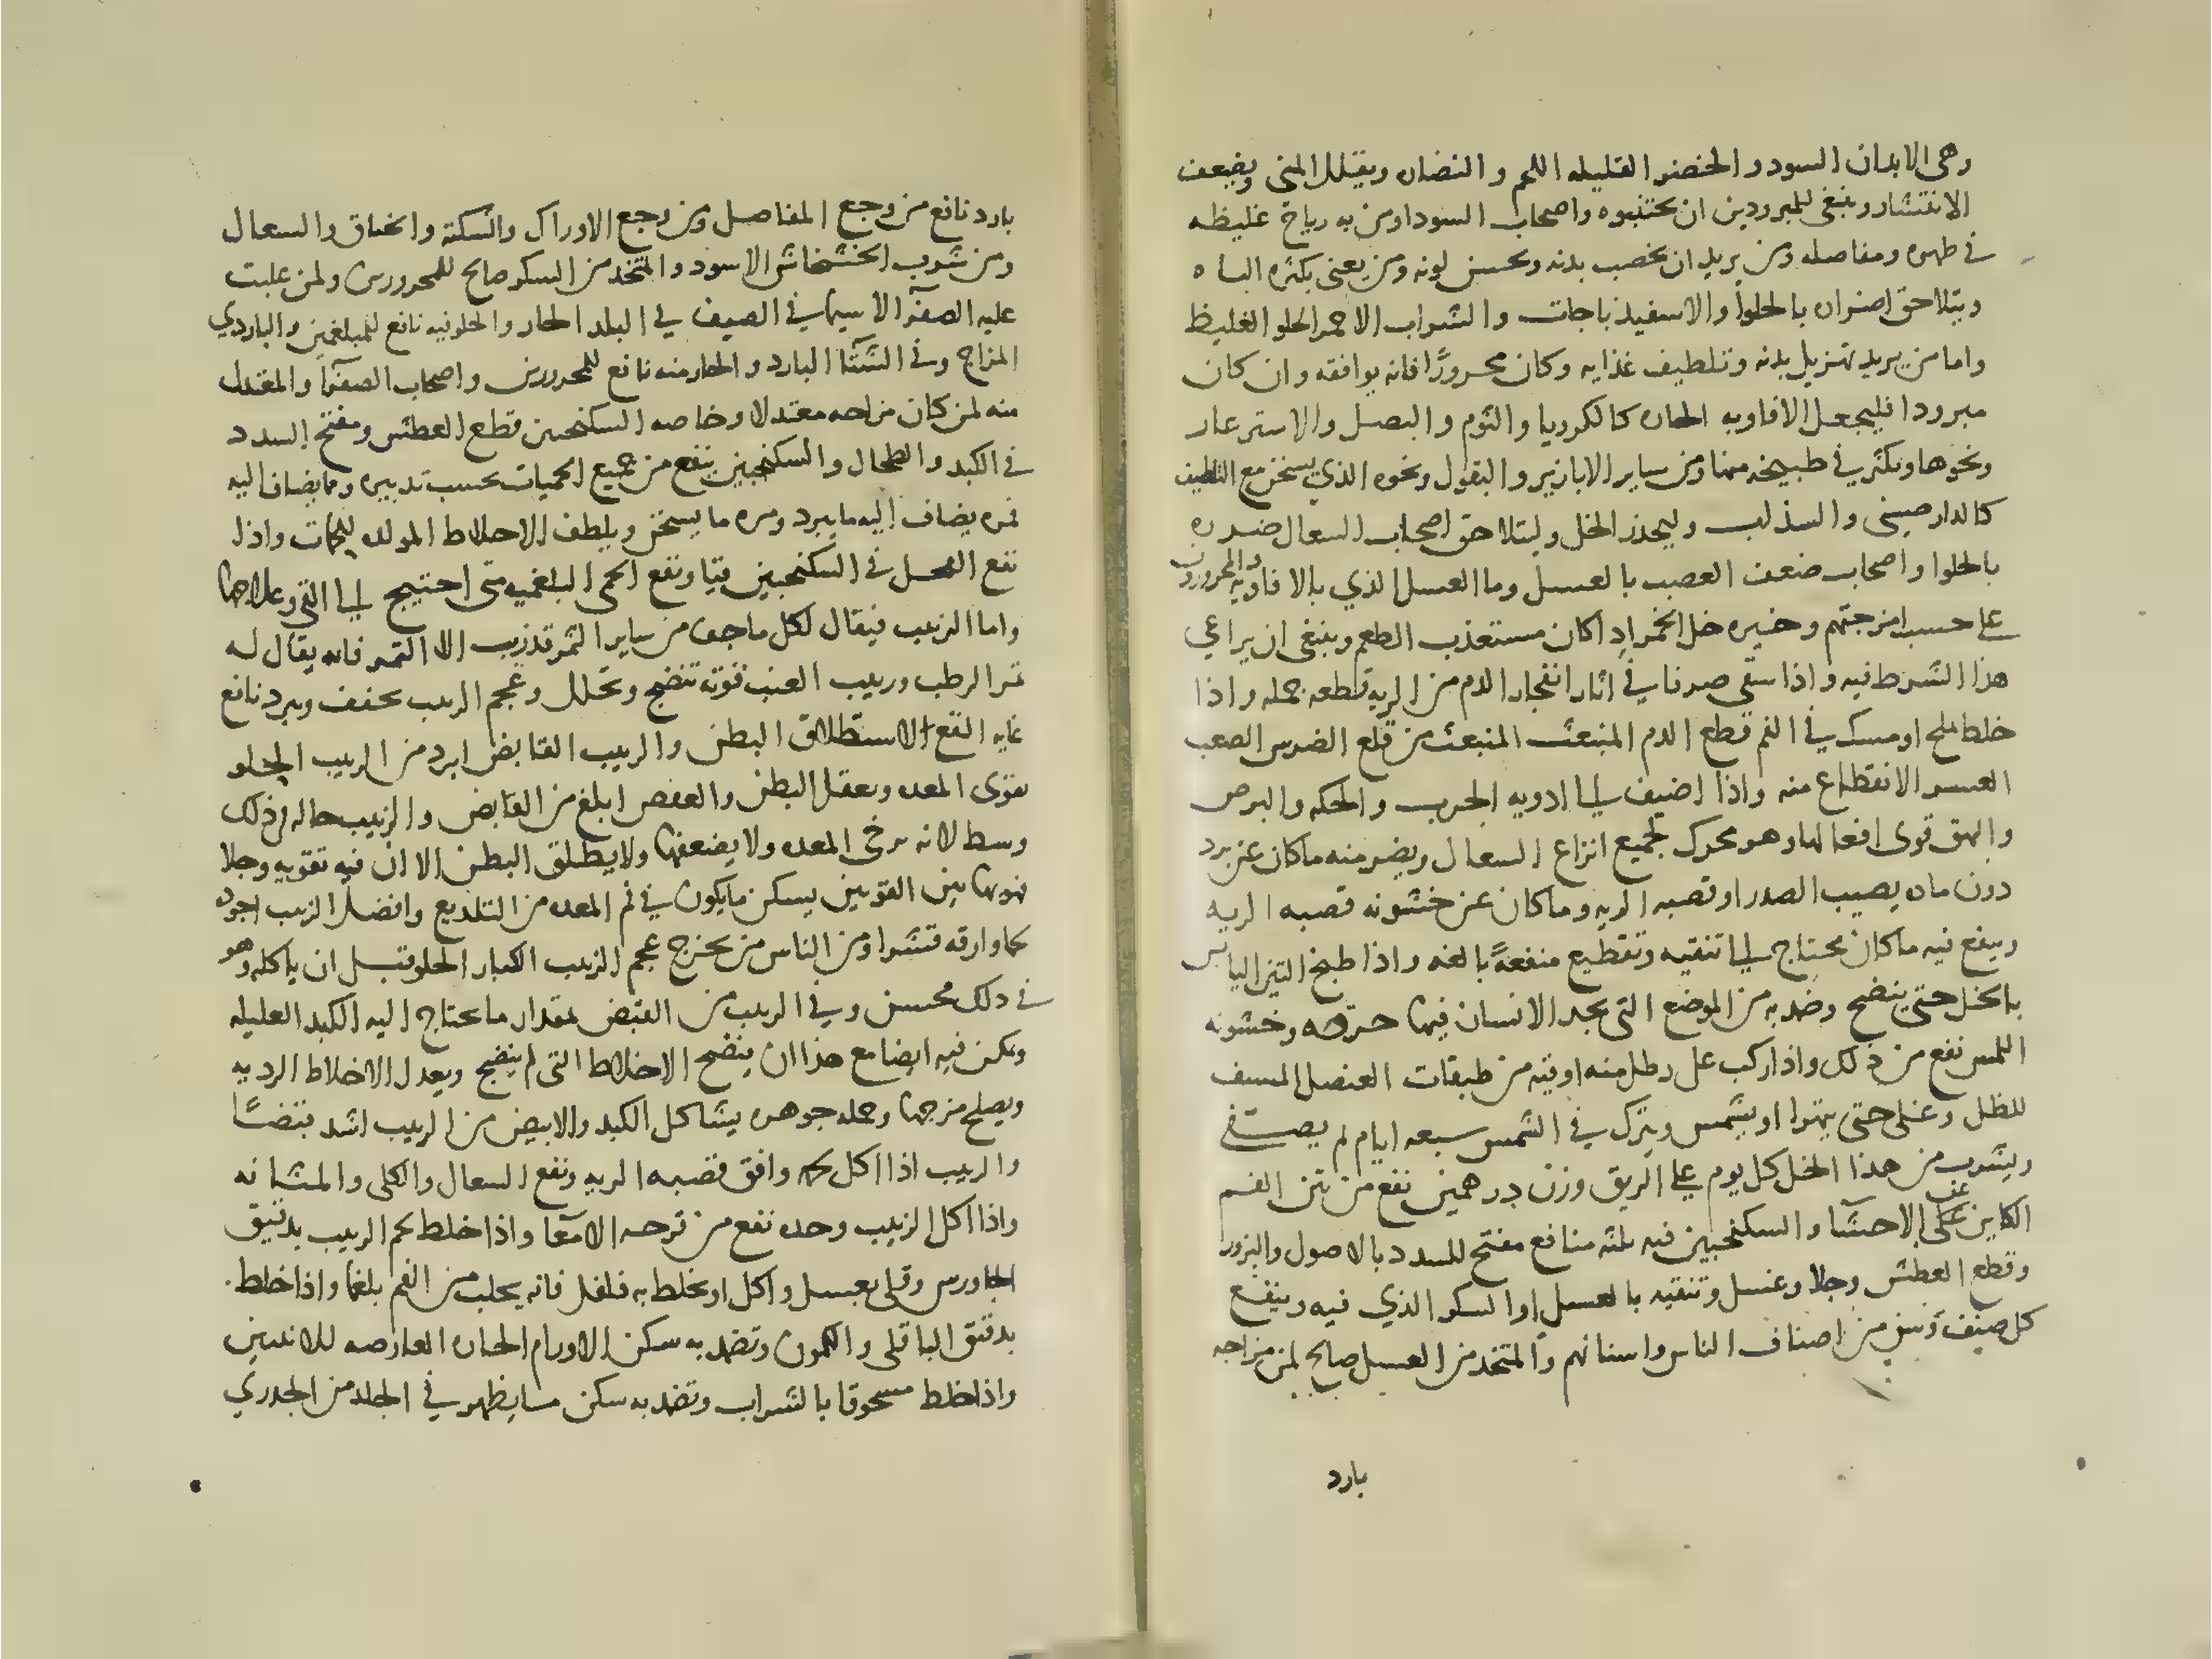 وهي الابدان السود والخضر القليله اللحم والنضاره ويقلل المني ويضعف
الانتشار وينبغي للمبرودين ان يجتنبوه واصحاب السودا ومن به رياح غليظه
في ظهره ومفاصله ومن يريد ان يخصب بدنه ويحسن لونه ومن يعنى بكثره الباه
ويتلاحق اضراره بالحلوا والاسفيذباجات والشراب الاحمر الحلو الغليظ
واما من يريد تهزيل بدنه وتلطيف غذايه وكان محرورًا فانه يوافقه وان كان
مبرودا فليجعل الافاويه الحاره كالكرويا والثوم والبصل والاسترغار
ونحوها ويكثر في طبيخه منها ومن ساير الابازير والبقول ونحوه الذي يسخن مع التلطيف
كالدارصيني والسذاب وليحذر الخل وليتلاحق اصحاب السعال ضرره
بالحلوا واصحاب ضعف العصب بالعسل وما العسل الذي بالافاويه والمحرورون
على حسب امزجتهم وخيره خل الخمر اذا كان مستعذب الطعم وينبغي ان يراعي
هذا الشرط فيه واذا سقي صرفا في اثار انفجار الدم من الريه قطعه جمله واذا
خلط بملح او مسك في الفم قطع الدم المنبعث المنبعث من قلع الضرس الصعب
العسر الانقطاع منه واذا اضيف الى ادويه الجرب والحكه والبرص
والبهق قوى افعالها وهو محرك لجميع انواع السعال ويضر منه ماكان عن برد
دون ماده يصيب الصدر او قصبه الريه وماكان عن خشونه قصبه الريه
وينفع فيه ماكان محتاج الى تنقيه وتقطيع منفعةً بالغه واذا طبخ التين اليابس
بالخل حتى ينضج وضمد به من الموضع التي يجد الانسان فيها حرقه وخشونه
اللمس نفع من ذلك واذا ركب على رطل منه اوقيه من طبقات العنصل المسيف
للظل وغلي حتى يتهرا او يشمس ويترك في الشمس سبعه ايام ثم يصفى
ويشرب من هذا الخل كل يوم على الريق وزن درهمين نفع من نتن الفم
الكاين عن الاحشا والسكنجبين فيه ثلثه منافع مفتح للسدد بالاصول والبزور
وقطع العطش وجلا وغسل وتنقيه بالعسل او السكر الذي فيه وينفع
كل صنف وسن من اصناف الناس واسنانهم والمتخذ من العسل صالح لمن مزاجه
بارد
بارد نافع من وجع المفاصل ومن وجع الاوراك والسكته والخناق والسعال
ومن شرب الخشخاش الاسود والمتخذ من السكر صالح للمحرورين ولمن غلبت
عليه الصفرا لاسيما في الصيف في البلد الحار والحلو فيه نافع للمبلغمين والباردي
المزاج وفي الشتا البارد والحار منه نافع للمحرورين واصحاب الصفرا والمعتدل
منه لمن كان مزاجه معتدلا وخاصه السكنجبين قطع العطش ومفتح السدد
في الكبد والطحال والسكنجبين ينفع من جميع الحميات بحسب تدبيره وما يضاف اليه
فمره يضاف اليه ما يبرد ومره ما يسخن ويلطف الاخلاط المولده للحميات واذا
نقع الفجل في السكنجبين قيا ونفع الحمى البلغميه متى احتيج الى القي وعلاجها
واما الزبيب فيقال لكل ما جف من ساير الثمر قد زبب الا التمر فانه يقال له
تمر الرطب وزبيب العنب قوته تنضج وتحلل وعجم الزبيب يجفف ويبرد نافع
غايه النفع لاستطلاق البطن والزبيب القابض ابرد من الزبيب الحلو
يقوى المعده ويعقل البطن والعفص ابلغ من القابض والزبيب حاله في ذلك
وسط لانه يرخي المعده ولا يضعفها ولا يطلق البطن الا ان فيه تقويه وجلا
فهو بهاتين القوتين يسكن مايكون في فم المعده من التلذيع وافضل الزبيب اجوده
لحما وارقه قشرا ومن الناس من يخرج عجم الزبيب الكبار الحلو قبل ان ياكله وهو
في ذلك محسن وفي الزبيب من القبض بمقدار ما يحتاج اليه الكبد العليله
ويمكن فيه ايضا مع هذا ان ينضج الاخلاط التي لم ينضج ويعدل الاخلاط الرديه
ويصلح مزجها وجمله جوهره يشاكل الكبد والابيض من الزبيب اشد قبضًا
والزبيب اذا اكل لحمه وافق قصبه الريه ونفع السعال والكلى والمثانه
واذا اكل الزبيب وحده نفع من قرحه الامعا واذا خلط لحم الزبيب بدقيق
الجاورس وقلي بعسل واكل او يخلط به فلفل فانه يجلب من الفم بلغما واذا خلط
بدقيق الباقلى والكمون وتضمد به سكن الاورام الحاره العارضه للانثيين
واذا خلط مسحوقا بالشراب وتضمد به سكن ما يظهر في الجلد من الجدري